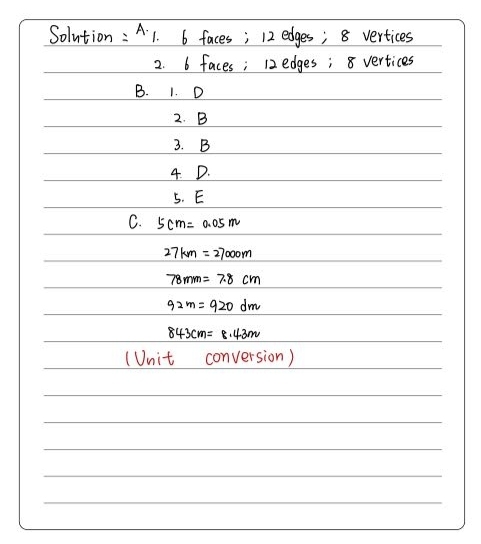 Solution : A. 1. 6 faces ; 12 edges ; 8 vertices
2. 6 faces ; 12 edges ; 8 vertices
B. 1. D
2. B
3. B
4. D.
5. E
C. 5cm= 0.05m
27km = 27000m
78mm= 7.8 cm
92m = 920 dm
843cm= 8.43m
(Unit conversion)